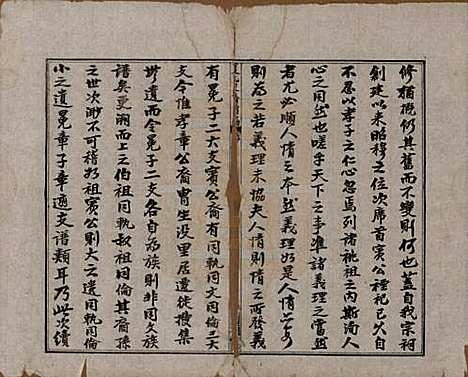 修猶概仍其舊而不變則何也蓋自我宗祠
創建以來昭穆之位次席首賓公裡祀已久自
不忍以孝子之仁心忽焉列諸祧祖之內斯為人
心之同然也嗟乎天下之事準諸義理之當然
者尤必順人情之本然義理好是人情
則為之若義理未協夫人情則情之所發義
有冕子二大支賓公裔有同執同文同倫三大
支今惟孝章公裔胄生沒里居遺徒搜集
無遺而全冕子二支各自為族則非同支族
譜矣更溯而上之伯祖同軌叔祖同倫其裔孫
之世次渺不可稽如祖賓公則大之遺同執同倫
小之遺冕章子章適支譜類耳乃此次續